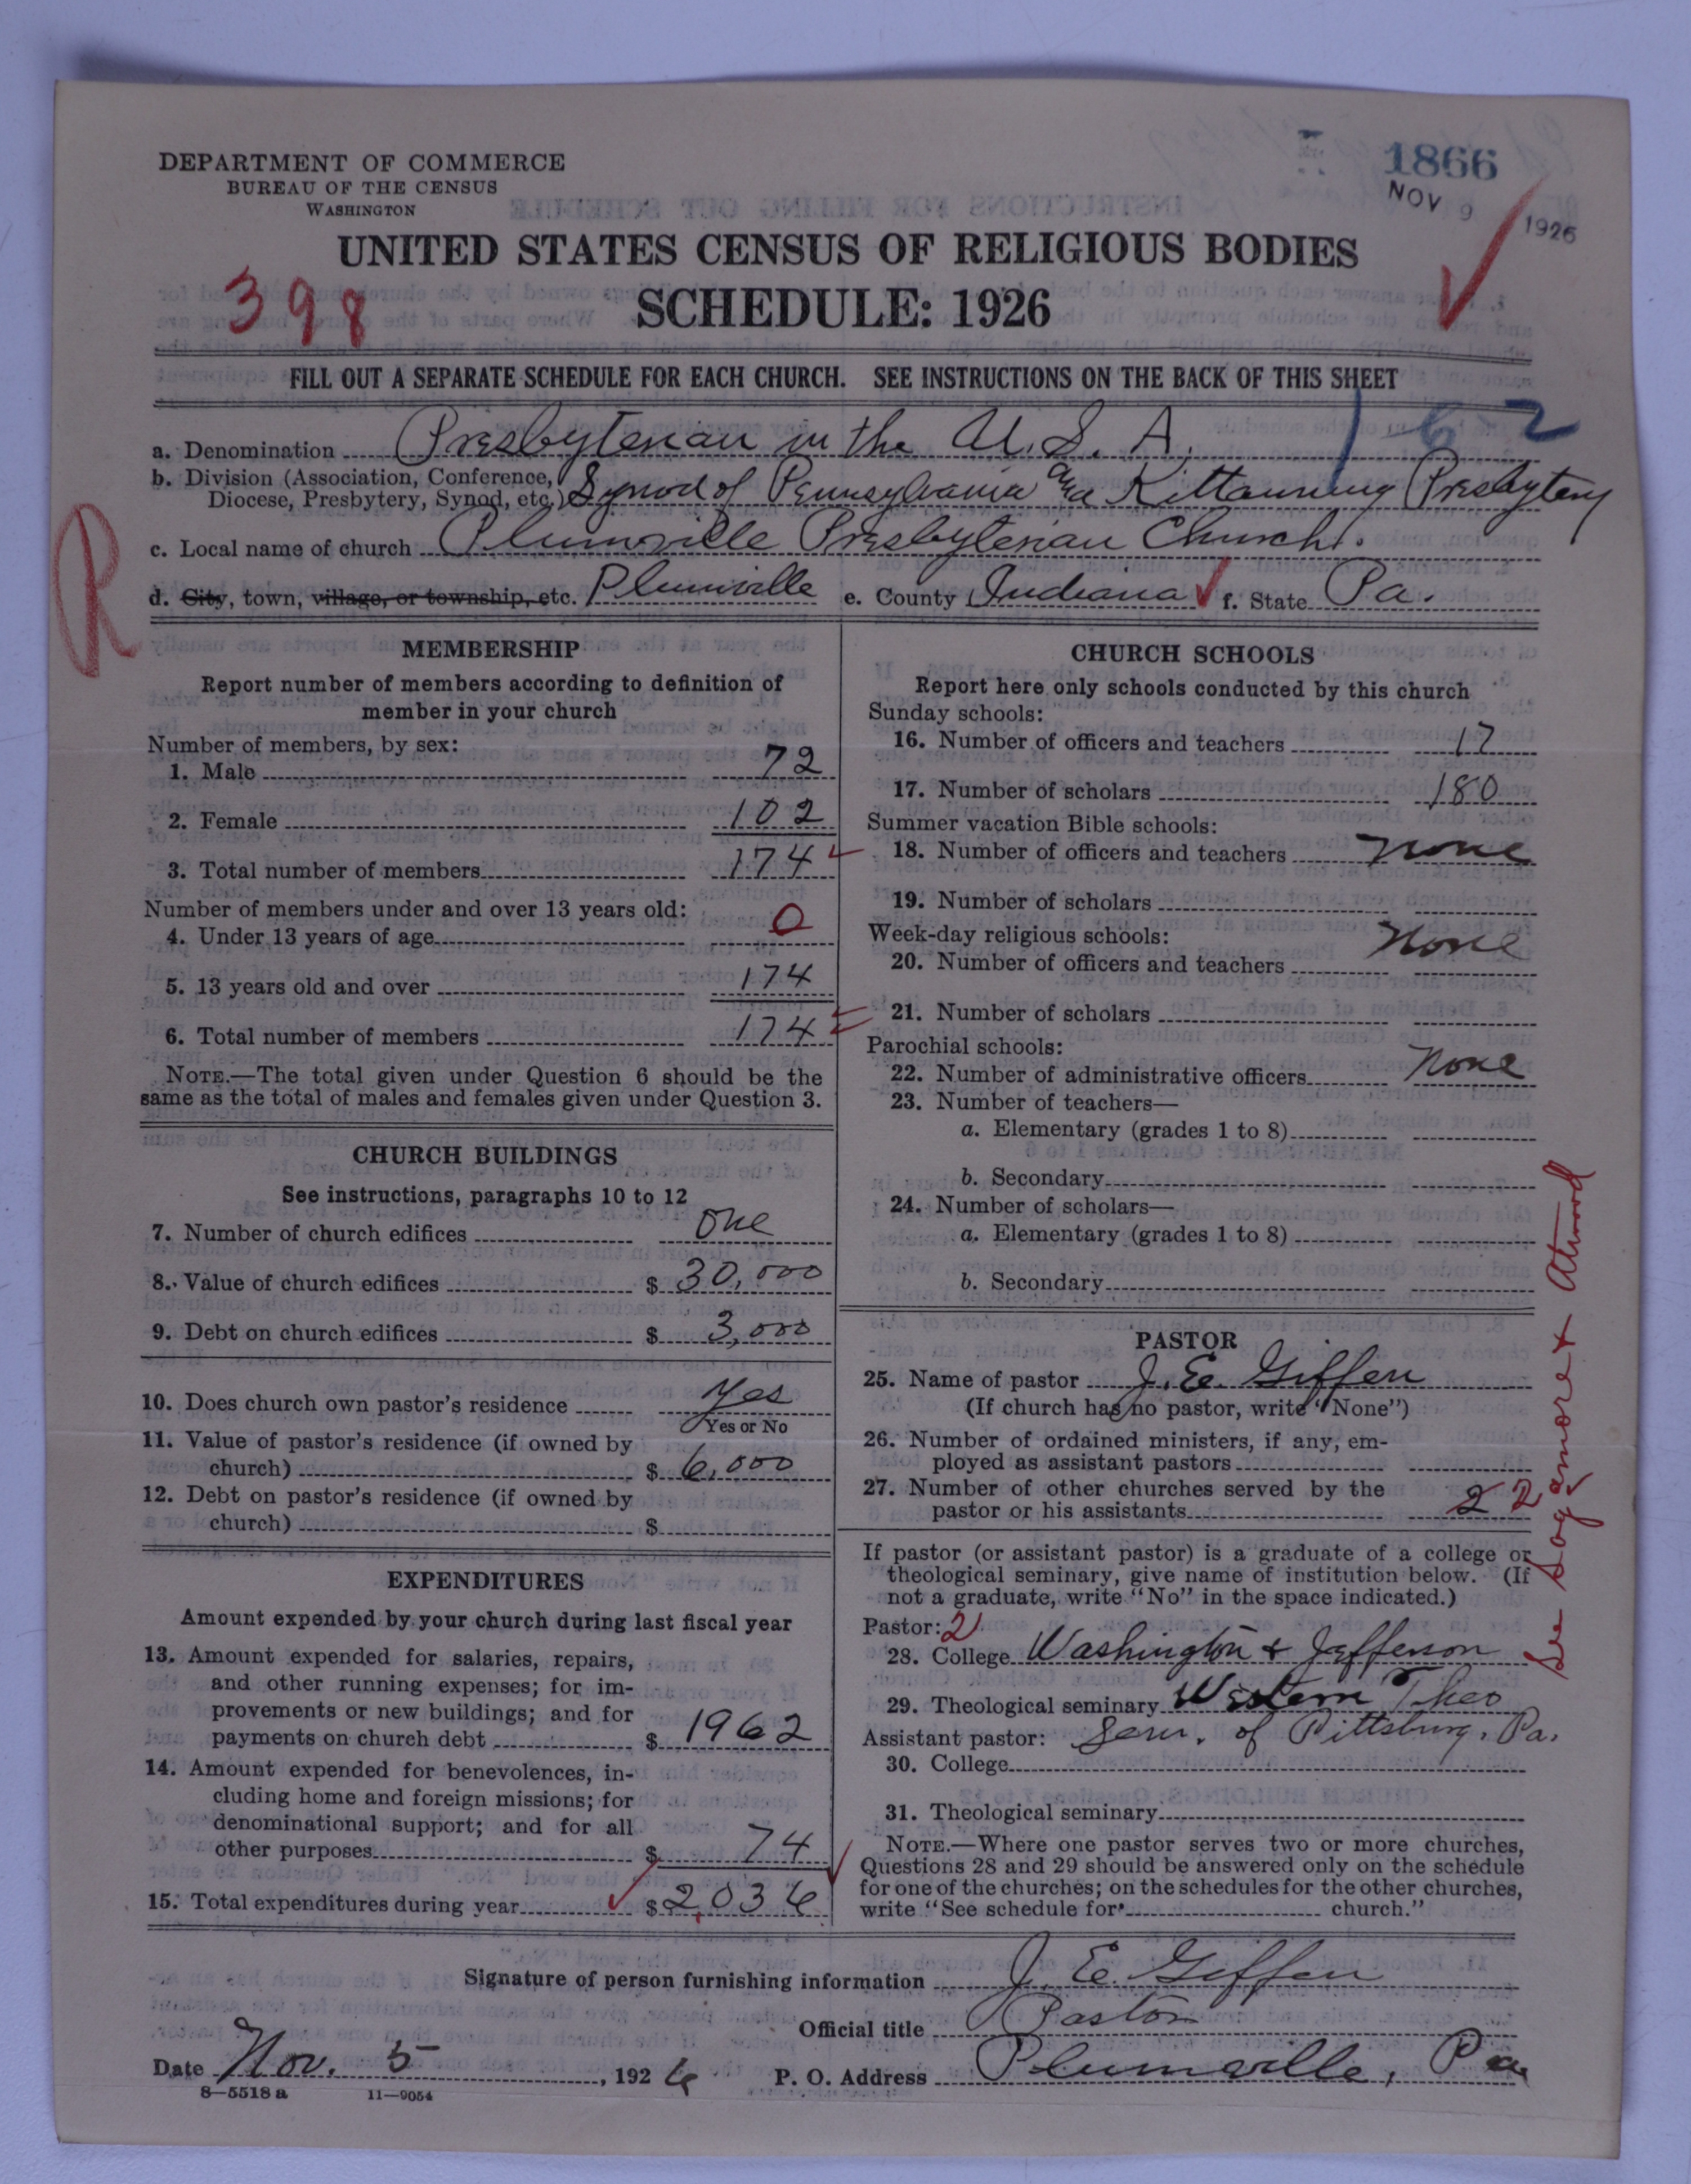 DEPARTMENT OF COMMERCE
BUREAU OF THE CENSUS
WASHINGTON
1866
NOV 9 1926
UNITED STATES CENSUS OF RELIGIOUS BODIES
398
SCHEDULE: 1926
FILL OUT A SEPARATE SCHEDULE FOR EACH CHURCH. SEE INSTRUCTIONS ON THE BACK OF THIS SHEET
162
a. Denomination Presbyterian in the U.S.A.
b. Division (Association, Conference,
Diocese, Presbytery, Synod, etc.) Synod of Pennsylvania and Kittanning Presbytery
R
c. Local name of church Plumville Presbyterian Church.
d. City, town, village, or township, etc. Plumville e. County Indiana f. State Pa.
MEMBERSHIP
Report number of members according to definition of
member in your church
Number of members, by sex:
1. Male 72
2. Female 102
3. Total number of members 174
Number of members under and over 13 years old:
4. Under 13 years of age 0
5. 13 years old and over 174
6. Total number of members 174
NOTE.—The total given under Question 6 should be the
same as the total of males and females given under Question 3.
CHURCH BUILDINGS
See instructions, paragraphs 10 to 12
7. Number of church edifices one
8. Value of church edifices $ 30,000
9. Debt on church edifices $ 3,000
10. Does church own pastor's residence Yes
Yes or No
11. Value of pastor's residence (if owned by
church) $ 6,000
12. Debt on pastor's residence (if owned by
church) $
EXPENDITURES
Amount expended by your church during last fiscal year
13. Amount expended for salaries, repairs,
and other running expenses; for im-
provements or new buildings; and for
payments on church debt $ 1962
14. Amount expended for benevolences, in-
cluding home and foreign missions; for
denominational support; and for all
other purposes $ 74
15. Total expenditures during year $ 2,036
CHURCH SCHOOLS
Report here only schools conducted by this church
Sunday schools:
16. Number of officers and teachers 17
17. Number of scholars 180
Summer vacation Bible schools:
18. Number of officers and teachers none
19. Number of scholars
Week-day religious schools:
20. Number of officers and teachers none
21. Number of scholars
Parochial schools:
22. Number of administrative officers none
23. Number of teachers—
a. Elementary (grades 1 to 8)
b. Secondary
24. Number of scholars—
a. Elementary (grades 1 to 8)
b. Secondary
PASTOR
25. Name of pastor J. E. Giffen
(If church has no pastor, write "None")
26. Number of ordained ministers, if any, em-
ployed as assistant pastors
27. Number of other churches served by the
pastor or his assistants 2 2
See Sagamore & Atwood
If pastor (or assistant pastor) is a graduate of a college or
theological seminary, give name of institution below. (If
not a graduate, write "No" in the space indicated.)
Pastor: 2
28. College Washington & Jefferson
29. Theological seminary Western Theo
Assistant pastor: Sem. of Pittsburg, Pa.
30. College
31. Theological seminary
NOTE.—Where one pastor serves two or more churches,
Questions 28 and 29 should be answered only on the schedule
for one of the churches; on the schedules for the other churches,
write "See schedule for church."
Signature of person furnishing information J. E. Giffen
Official title Pastor
Date Nov. 5, 1926 P. O. Address Plumville, Pa
8—5518 a 11—9054